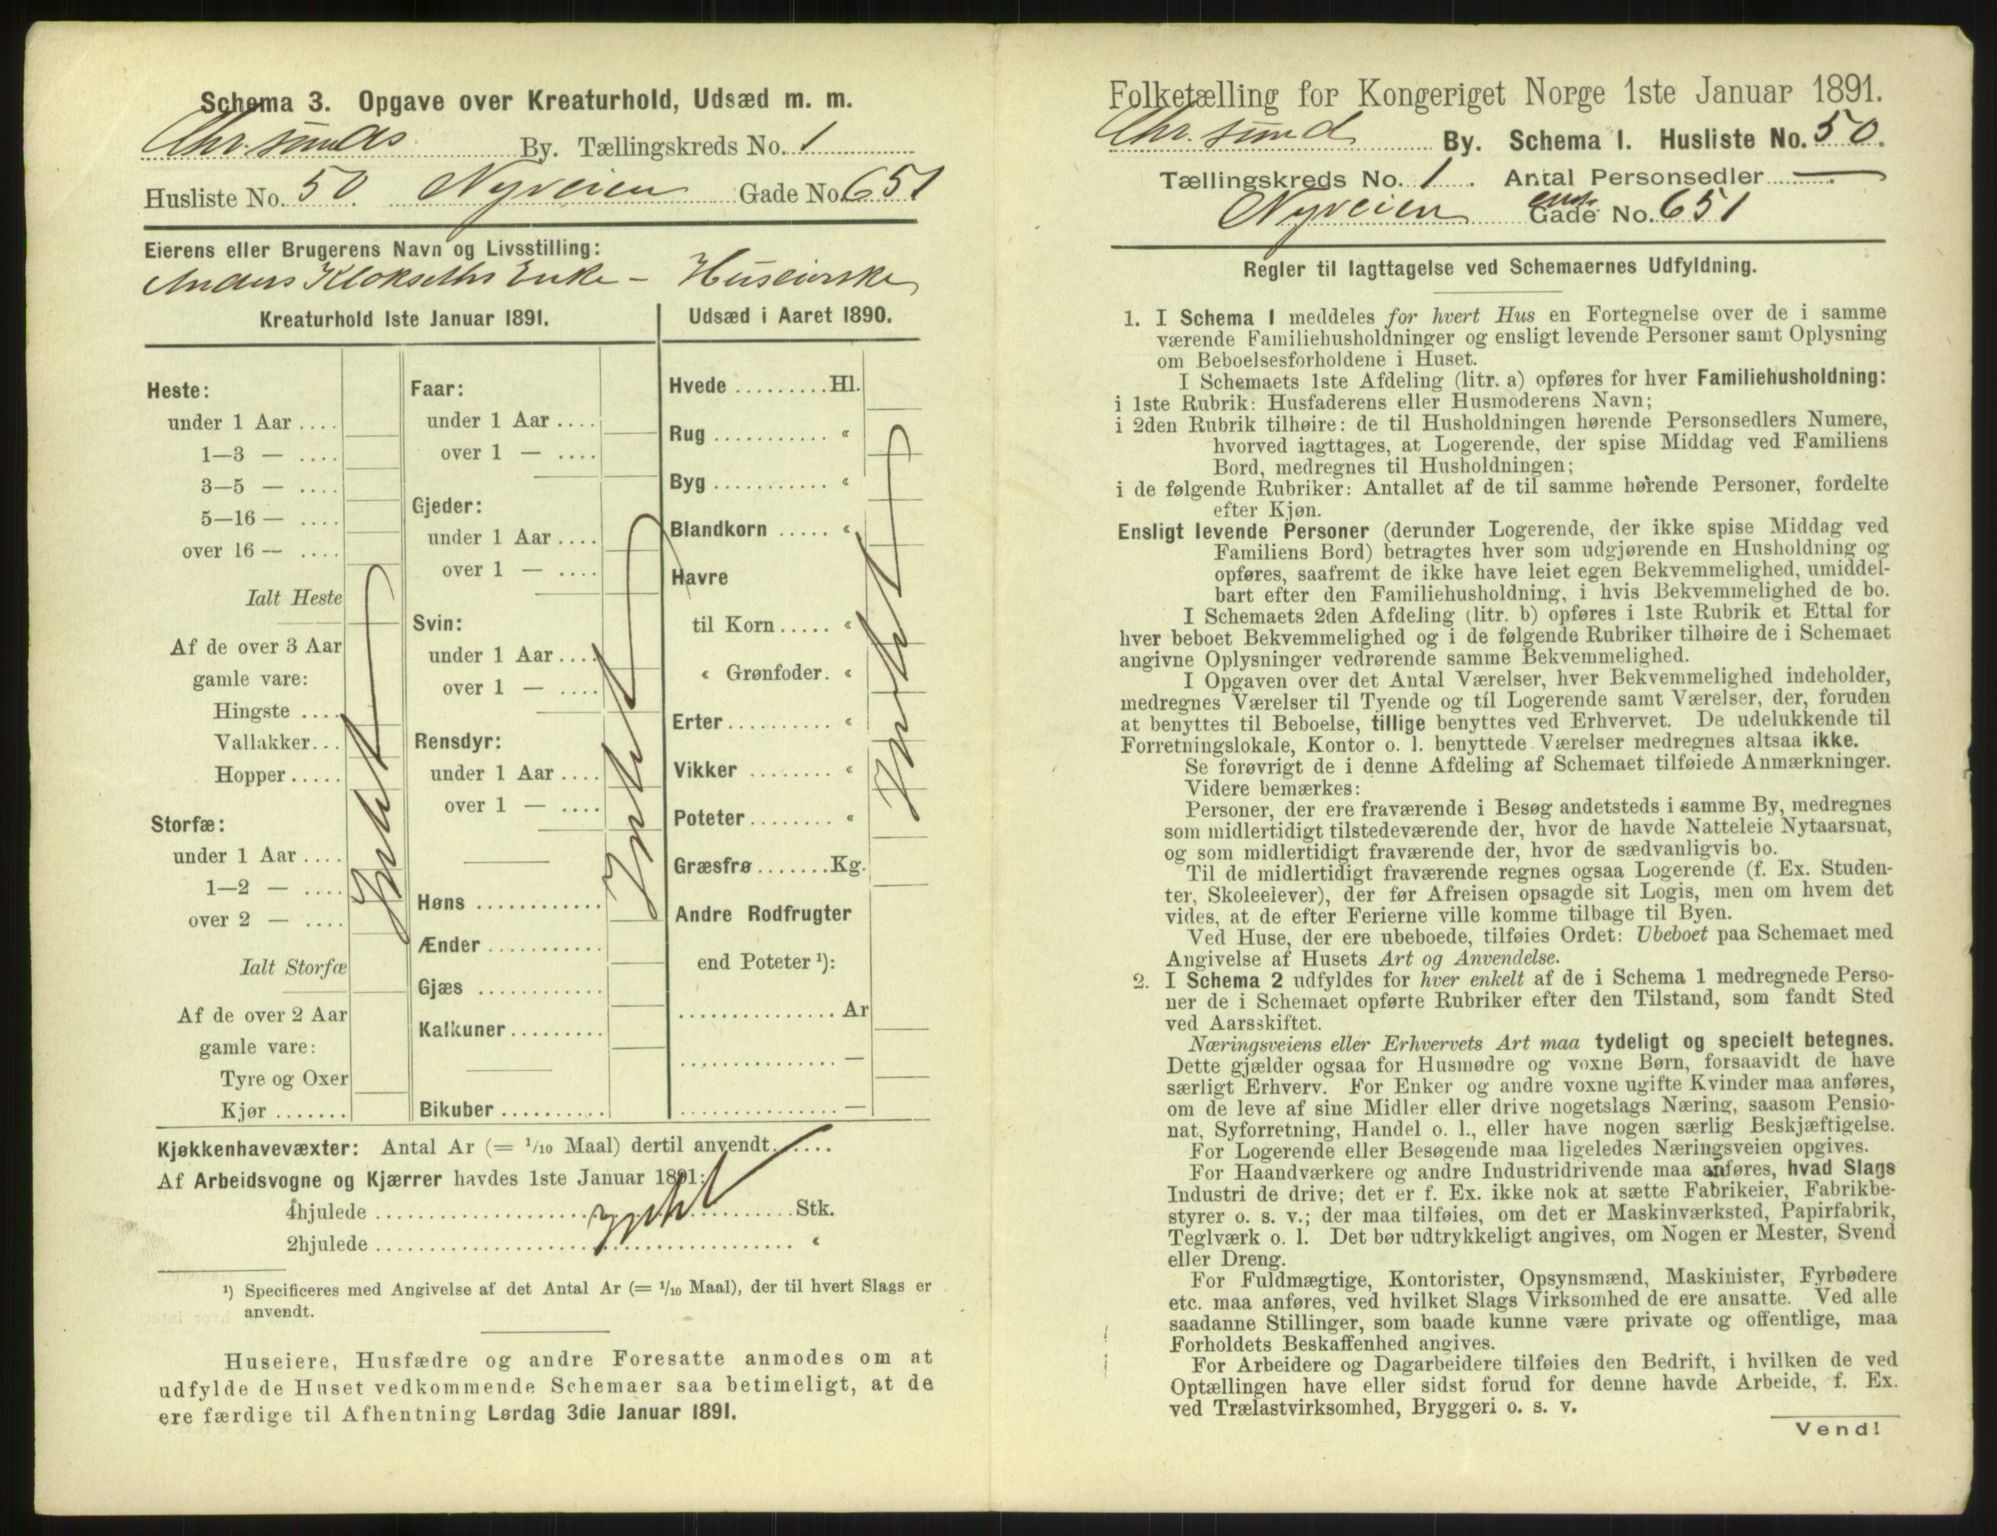 Schema 3. Opgave over Kreaturhold, Udsæd m. m.
Chr.sunds By. Tællingskreds No. 1
Husliste No. 50. Nyveien Gade No. 651
Eierens eller Brugerens Navn og Livsstilling:
Anders Klokseths Enke – Huseierske
Kreaturhold 1ste Januar 1891.
Heste:
under 1 Aar ....
1—3 — ....
3—5 — ....
5—16 — ....
over 16 — ....
Ialt Heste
Af de over 3 Aar
gamle vare:
Hingste ....
Vallakker...
Hopper .....
Storfæ:
under 1 Aar ....
1—2 — ....
over 2 — ....
Ialt Storfæ
Af de over 2 Aar
gamle vare:
Tyre og Oxer
Kjør .......
Intet
Faar:
under 1 Aar ....
over 1 — ....
Gjeder:
under 1 Aar ....
over 1 — ....
Svin:
under 1 Aar ....
over 1 — ....
Rensdyr:
under 1 Aar ....
over 1 — ....
Høns ............
Ænder ...........
Gjæs ............
Kalkuner.........
Bikuber ..........
Intet
Udsæd i Aaret 1890.
Hvede .........Hl.
Rug ........... «
Byg ........... «
Blandkorn ..... «
Havre
til Korn..... «
« Grønfoder. «
Erter.......... «
Vikker ........ «
Poteter........ «
Græsfrø .......Kg.
Andre Rodfrugter
end Poteter ¹):
............... Ar
............... —
............... —
Intet
Kjøkkenhavevæxter: Antal Ar (= 1/10 Maal) dertil anvendt......
Af Arbeidsvogne og Kjærrer havdes 1ste Januar 1891:
4hjulede ........................................ Stk.
2hjulede ........................................ «
Intet
¹) Specificeres med Angivelse af det Antal Ar (= 1/10 Maal), der til hvert Slags er
anvendt.
Huseiere, Husfædre og andre Foresatte anmodes om at
udfylde de Huset vedkommende Schemaer saa betimeligt, at de
ere færdige til Afhentning Lørdag 3die Januar 1891.
Folketælling for Kongeriget Norge 1ste Januar 1891.
Chr.sund By. Schema 1. Husliste No. 50.
Tællingskreds No. 1. Antal Personsedler —
Nyveien Gade No. 651
Regler til Iagttagelse ved Schemaernes Udfyldning.
1. I Schema 1 meddeles for hvert Hus en Fortegnelse over de i samme
værende Familiehusholdninger og ensligt levende Personer samt Oplysning
om Beboelsesforholdene i Huset.
I Schemaets 1ste Afdeling (litr. a) opføres for hver Familiehusholdning:
i 1ste Rubrik: Husfaderens eller Husmoderens Navn;
i 2den Rubrik tilhøire: de til Husholdningen hørende Personsedlers Numere,
hvorved iagttages, at Logerende, der spise Middag ved Familiens
Bord, medregnes til Husholdningen;
i de følgende Rubriker: Antallet af de til samme hørende Personer, fordelte
efter Kjøn.
Ensligt levende Personer (derunder Logerende, der ikke spise Middag ved
Familiens Bord) betragtes hver som udgjørende en Husholdning og
opføres, saafremt de ikke have leiet egen Bekvemmelighed, umiddel-
bart efter den Familiehusholdning, i hvis Bekvemmelighed de bo.
I Schemaets 2den Afdeling (litr. b) opføres i 1ste Rubrik et Ettal for
hver beboet Bekvemmelighed og i de følgende Rubriker tilhøire de i Schemaet
angivne Oplysninger vedrørende samme Bekvemmelighed.
I Opgaven over det Antal Værelser, hver Bekvemmelighed indeholder,
medregnes Værelser til Tyende og til Logerende samt Værelser, der, foruden
at benyttes til Beboelse, tillige benyttes ved Erhvervet. De udelukkende til
Forretningslokale, Kontor o. l. benyttede Værelser medregnes altsaa ikke.
Se forøvrigt de i denne Afdeling af Schemaet tilføiede Anmærkninger.
Videre bemærkes:
Personer, der ere fraværende i Besøg andetsteds i samme By, medregnes
som midlertidigt tilstedeværende der, hvor de havde Natteleie Nytaarsnat,
og som midlertidigt fraværende der, hvor de sædvanligvis bo.
Til de midlertidigt fraværende regnes ogsaa Logerende (f. Ex. Studen-
ter, Skoleelever), der før Afreisen opsagde sit Logis, men om hvem det
vides, at de efter Ferierne ville komme tilbage til Byen.
Ved Huse, der ere ubeboede, tilføies Ordet: Ubeboet paa Schemaet med
Angivelse af Husets Art og Anvendelse.
2. I Schema 2 udfyldes for hver enkelt af de i Schema 1 medregnede Perso-
ner de i Schemaet opførte Rubriker efter den Tilstand, som fandt Sted
ved Aarsskiftet.
Næringsveiens eller Erhvervets Art maa tydeligt og specielt betegnes.
Dette gjælder ogsaa for Husmødre og voxne Børn, forsaavidt de have
særligt Erhverv. For Enker og andre voxne ugifte Kvinder maa anføres,
om de leve af sine Midler eller drive nogetslags Næring, saasom Pensio-
nat, Syforretning, Handel o. l., eller have nogen særlig Beskjæftigelse.
For Logerende eller Besøgende maa ligeledes Næringsveien opgives.
For Haandværkere og andre Industridrivende maa anføres, hvad Slags
Industri de drive; det er f. Ex. ikke nok at sætte Fabrikeier, Fabrikbe-
styrer o. s. v.; der maa tilføies, om det er Maskinværksted, Papirfabrik,
Teglværk o. l. Det bør udtrykkeligt angives, om Nogen er Mester, Svend
eller Dreng.
For Fuldmægtige, Kontorister, Opsynsmænd, Maskinister, Fyrbødere
etc. maa anføres, ved hvilket Slags Virksomhed de ere ansatte. Ved alle
saadanne Stillinger, som baade kunne være private og offentlige, maa
Forholdets Beskaffenhed angives.
For Arbeidere og Dagarbeidere tilføies den Bedrift, i hvilken de ved
Optællingen have eller sidst forud for denne havde Arbeide, f. Ex.
ved Trælastvirksomhed, Bryggeri o. s. v.
Vend!